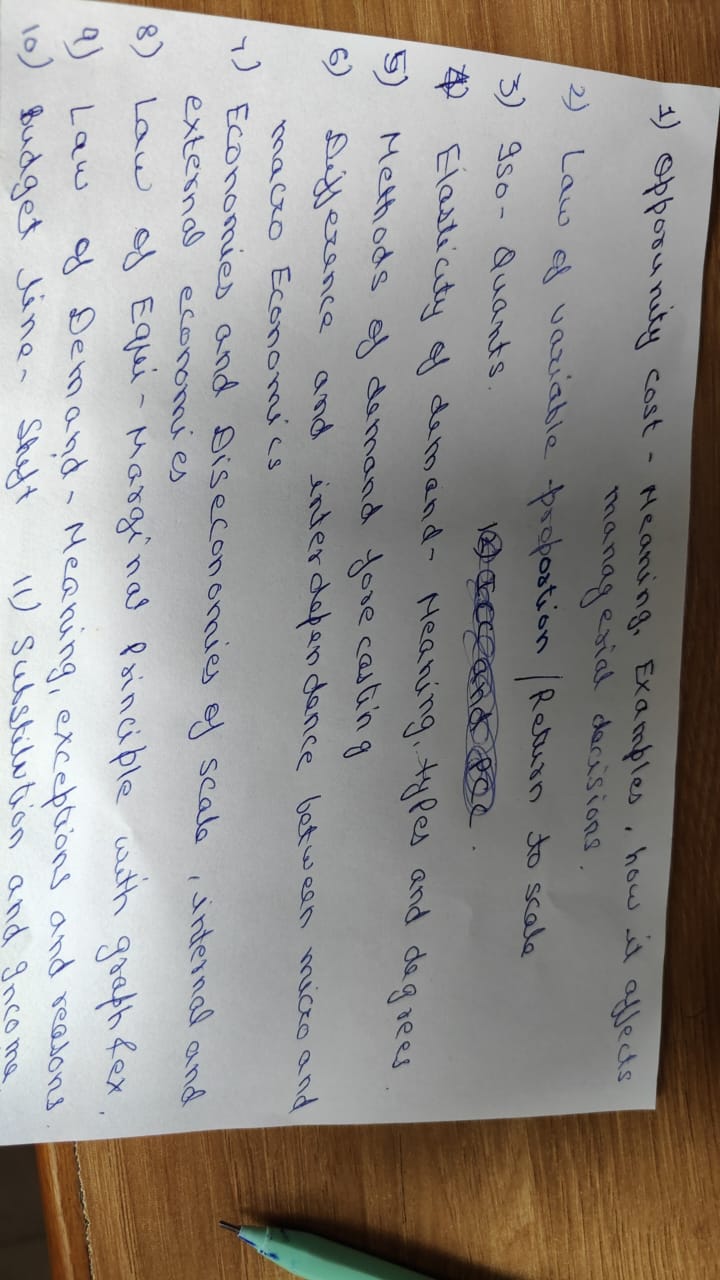 1) Opporunity cost - Meaning, Examples, how it affects
managerial decisions.
2) Law of variable proportion / Return to scale
3) Iso-Quants.
4) Elasticity of demand - Meaning, types and degrees.
5) Methods of demand forecasting
6) Difference and interdependence between micro and
macro Economics
7) Economies and Diseconomies of scale, internal and
external economies
8) Law of Equi-Marginal Principle with graph & ex.
9) Law of Demand - Meaning, exceptions and reasons.
10) Budget line - Shift 11) Substitution and Income